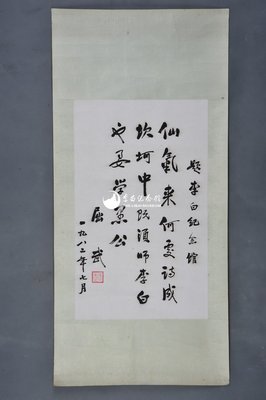 题李白纪念馆
仙气来何处诗成
坎坷中既须师李白
也要学愚公
屈武
一九八二年七月
李白纪念馆